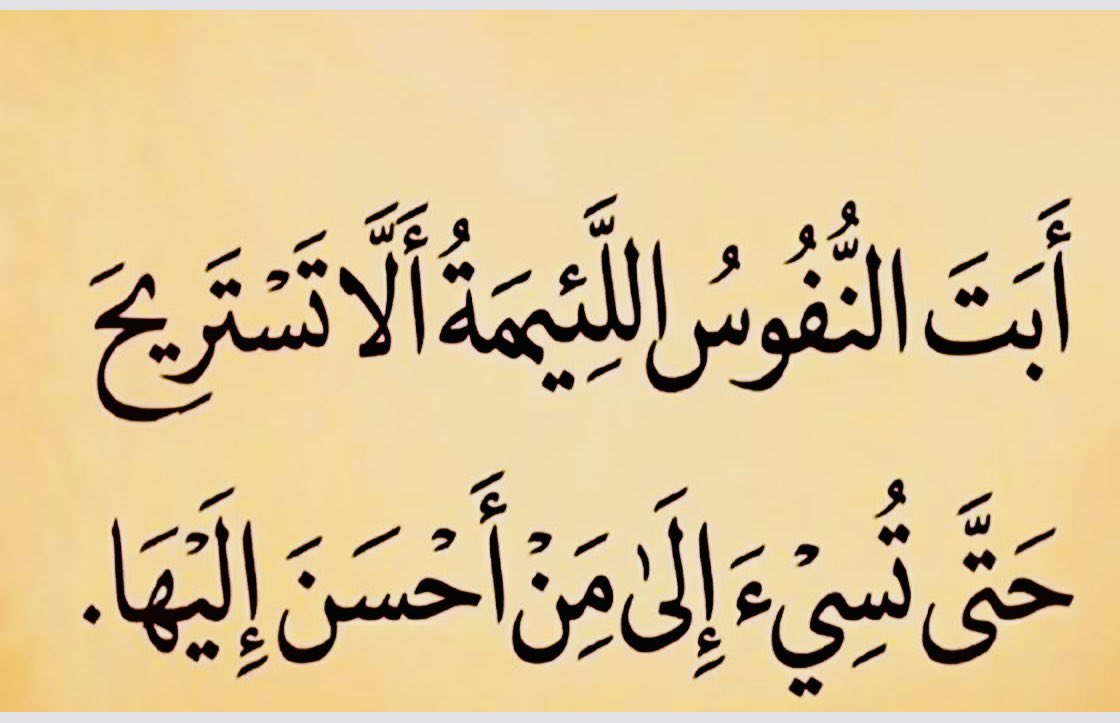 أَبَتَ النُّفُوسُ اللَّئِيمَةُ أَلَّا تَسْتَرِيحَ
حَتَّى تُسِيْءَ إِلَى مَنْ أَحْسَنَ إِلَيْهَا.